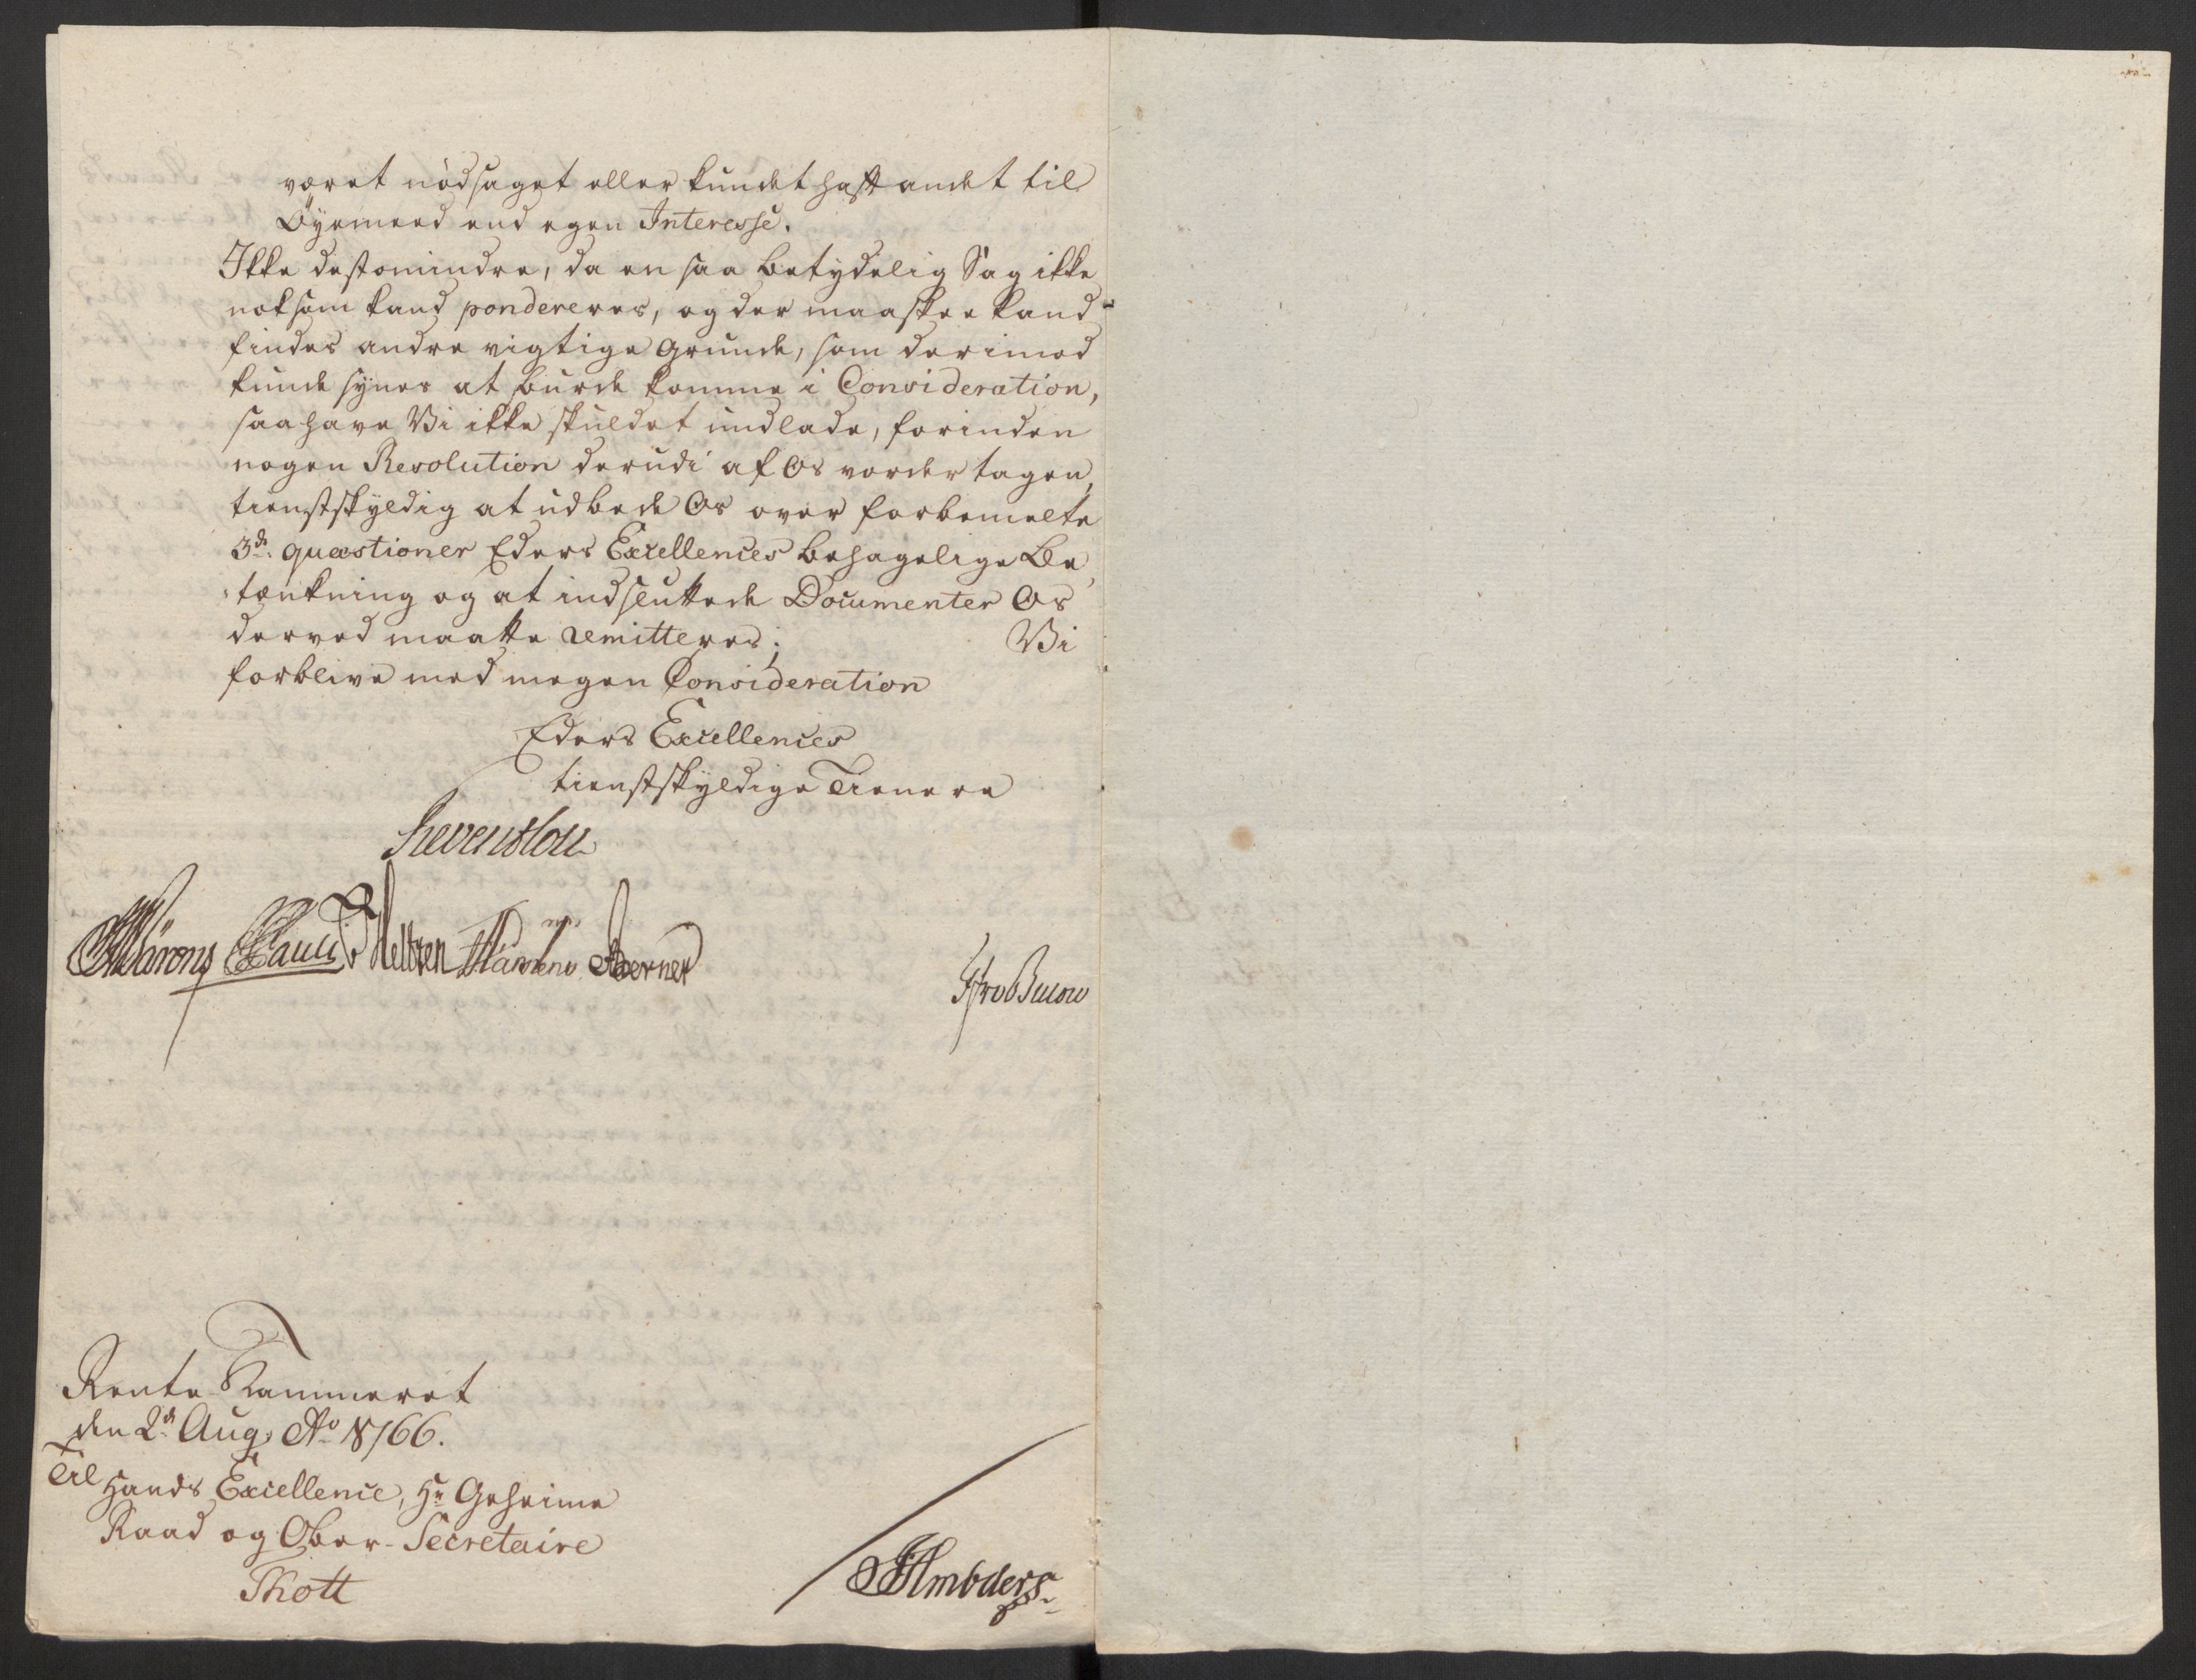 været nödsaget eller kundet haft andet til
Öyemeed end egen Interesse.
Ikke destomindre, da en saa betydelig Sag ikke
noksom kand pondereres, og der maaskee kand
findes andre vigtige Grunde, som derimod
kunde synes at burde komme i Consideration,
saa have Vi ikke skuldet undlade, forinden
nogen Resolution derudi af Os vorder tagen,
tienstskyldig at udbede Os over forbemelte
3de quæstioner Eders Excellences behagelige Be
tænkning og at indsluttede Documenter Os
derved maatte remitteres;
Vi
forblive med megen Consideration
Eders Excellences
tienstskyldige Tienere
Reventlou
Heltzen
Berner
Rente-Kammeret
den 2de Aug: Ao 1766.
Til Hands Excellence, Hr Geheime
Raad og Ober-Secretaire
Thott